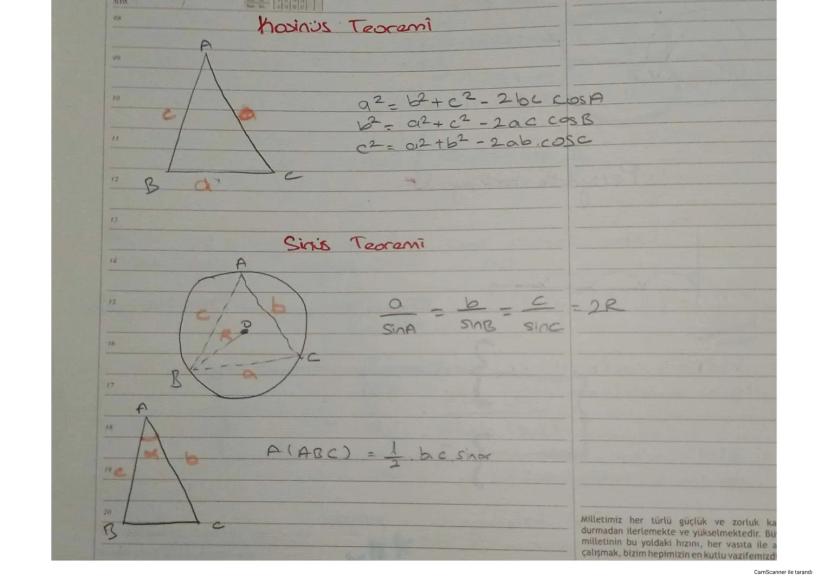 Kosinüs Teoremi
A
c
B
a
C
a² = b² + c² - 2bc cosA
b² = a² + c² - 2ac cosB
c² = a² + b² - 2ab.cosC
Sinüs Teoremi
A
c
b
R
B
a
C
a/sinA = b/sinB = c/sinC = 2R
A
α
c
b
B
C
A(ABC) = 1/2 . b.c sinα
09
10
11
12
13
14
15
16
17
18
19
20
Milletimiz her türlü güçlük ve zorluk ka
durmadan ilerlemekte ve yükselmektedir. Bü
milletinin bu yoldaki hızını, her vasıta ile a
çalışmak, bizim hepimizin en kutlu vazifemizd
CamScanner ile tarandı